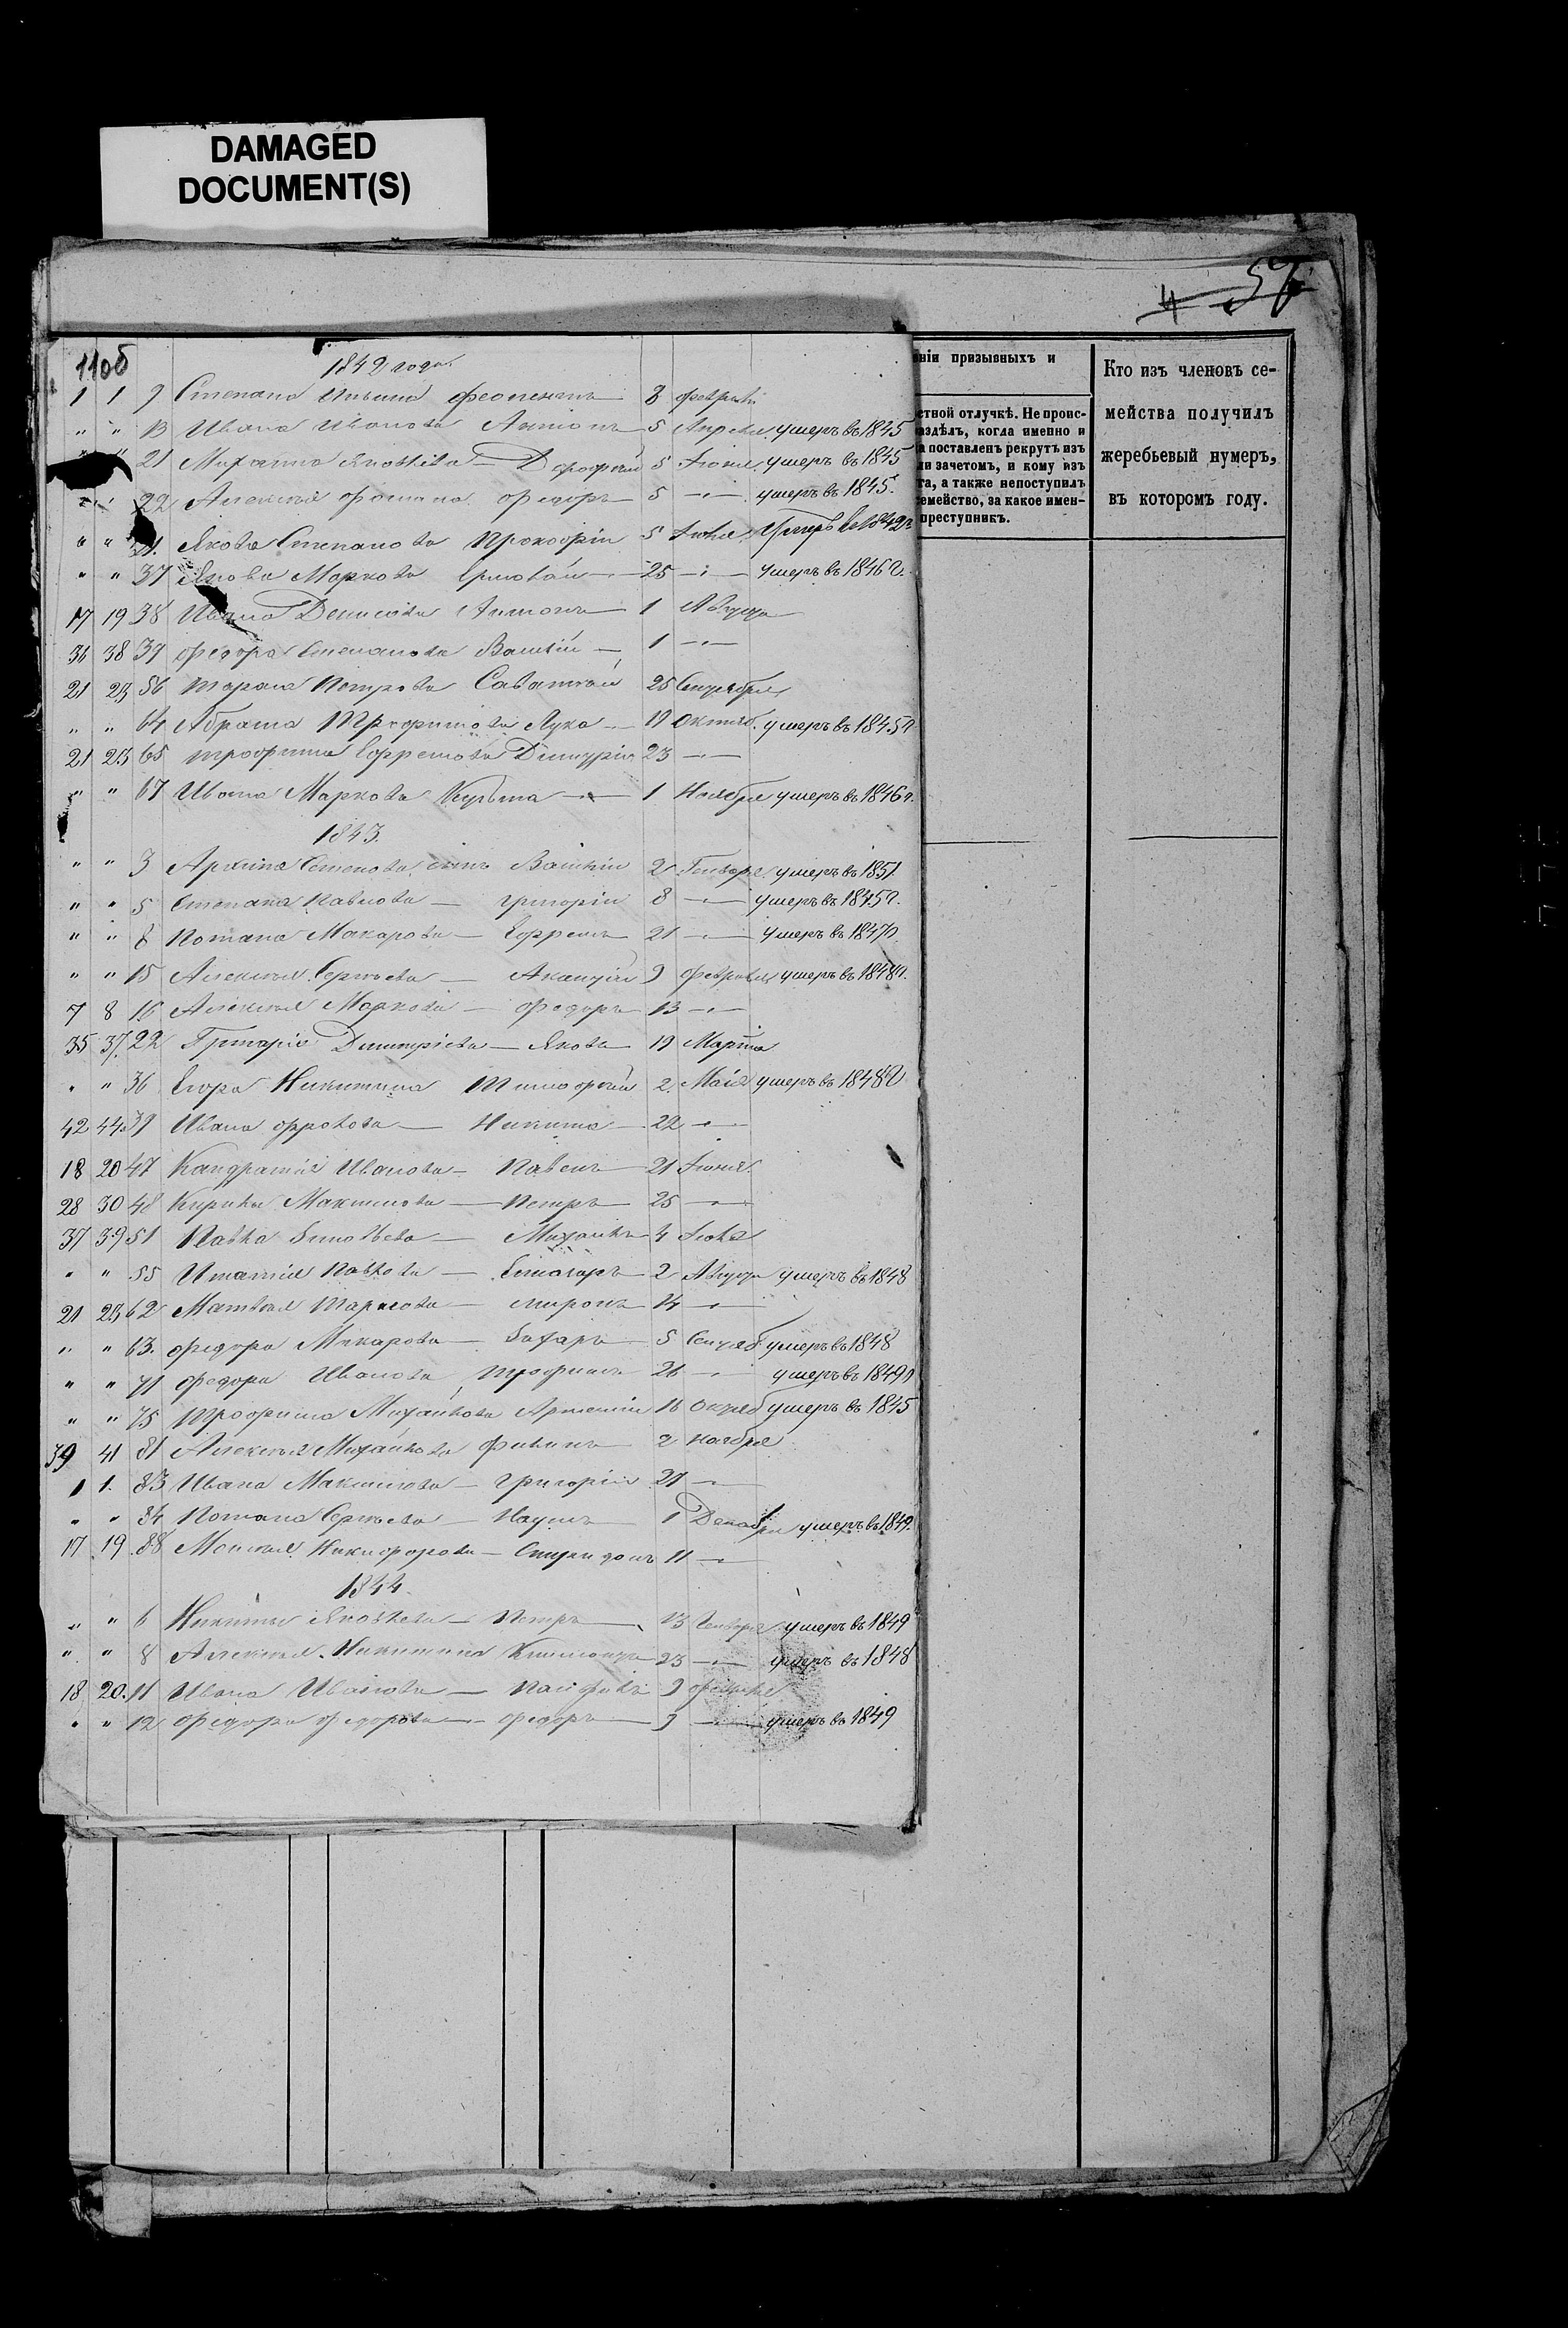 DAMAGED
DOCUMENT(S)
57
4
нiи призывныхъ и
стной отлучкѣ. Не проис-
аздѣлъ, когда именно и
а поставленъ рекрутъ изъ
ли зачетомъ, и кому изъ
та, а также непоступилъ
семейство, за какое имен-
преступникъ.
Кто изъ членовъ се-
мейства получилъ
жеребьевый нумеръ,
въ которомъ году.
110б
1842 года.
1 1 9 Степана Ильина 8 февраля
" " 13 Ивана Иванова Антонъ 5 Апреля умеръ въ 1845
" " 21 Михаила Яковлева Дорофей 5 умеръ въ 1845
" " 22 Алексѣя Фомина Федоръ 5 — умеръ въ 1845.
" " Якова Степанова Прокофiй 5 Iюля
" " 37 Якова Маркова Ермолай 25 — умеръ въ 1846 г.
17 19 38 Ивана Денисова Антонъ 1 Августа
36 38 39 Федора Степанова Василiй 1 —
21 23 56 Тараса Петрова Саватѣй 25 Сентября
" " 64 Абрама Трофимова Лука 19 Октяб. умеръ въ 1845 г
21 23 65 Трофима Ефремова Димитрiй 23 —
" " 67 Ивана Маркова Кузьма 1 Ноября умеръ въ 1846 г.
1843.
" " 3 Архипа Семенова сынъ Василiй 2 Генваря умеръ въ 1851
" " 5 Степана Павлова — Григорiй 8 — умеръ въ 1845 г.
" " 8 Потапа Макарова — Ефремъ 21 — умеръ въ 1847 г.
" " 15 Алексѣя Сергѣева — 9 февраля умеръ въ 1848 г.
7 8 16 Алексѣя Маркова — Федоръ 13 —
35 37 22 Григорiя Димитрiева — Якова 19 Марта
" " 36 Егора Никитина Тимофѣй 2 Маiя умеръ въ 1848 г
42 44 39 Ивана Фролова — Никита 22 —
18 20 47 Кандратiя Иванова — Павелъ 21 Iюня
28 30 48 Кирилы Максимова — Петръ 25 —
37 39 51 Павла Зиновьева — Михаилъ 4 Iюля
" " 55 Игнатiя Павлова — 2 Августа умеръ въ 1848
21 23 62 Матвѣя Тарасова — Миронъ 14 —
" " 63. Федора Макарова — Захаръ 5 Сентяб умеръ въ 1848
" " 71 Федора Иванова Трофимъ 26 — умеръ въ 1849 г
" " 75 Трофима Михайлова Артемiй 16 Октяб умеръ въ 1845
39 41 81 Алексѣя Михайлова Филипъ 2 Ноября
1 1. 83 Ивана Максимова — Григорiй 27 —
" " 84 Потапа Сергѣева — Наумъ 1 Декабря умеръ въ 1849.
17 19 88 Моисѣя Никифорова — Спиридонъ 11 —
1844.
" " 6 Никиты Яковлева — Петръ 13 Генваря умеръ въ 1849
" " 8 Алексѣя Никитина 23 — умеръ въ 1848
18 20. 11 Ивана Иванова — 9 февраля
" " 12 Федора Федорова — Федоръ — 9 — умеръ въ 1849